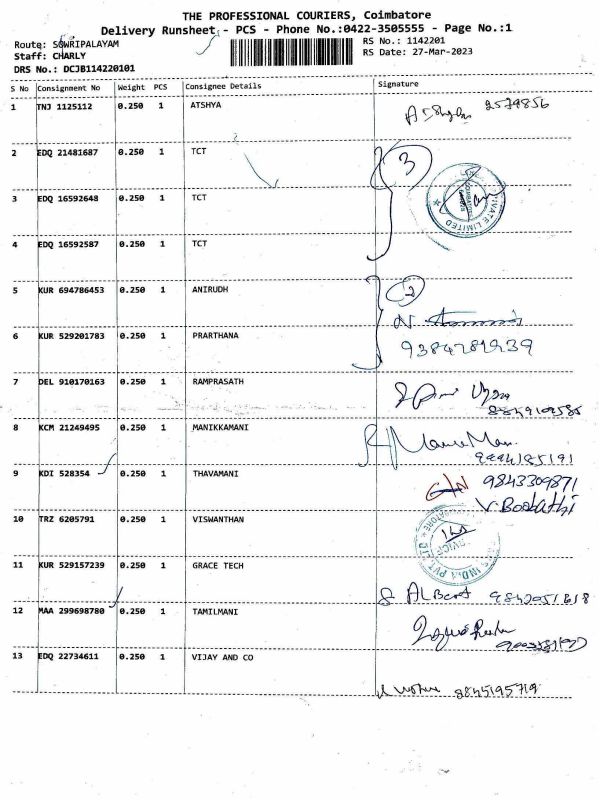 THE PROFESSIONAL COURIERS, Coimbatore
Delivery Runsheet - PCS - Phone No.:0422-3505555 - Page No.:1
Route: SOWRIPALAYAM RS No.: 1142201
Staff: CHARLY RS Date: 27-Mar-2023
DRS No.: DCJB114220101
S No Consignment No Weight PCS Consignee Details Signature
1 TNJ 1125112 0.250 1 ATSHYA 2574856
2 EDQ 21481687 0.250 1 TCT 3
3 EDQ 16592648 0.250 1 TCT
PRIVATE LIMITED
4 EDQ 16592587 0.250 1 TCT
5 KUR 694786453 0.250 1 ANIRUDH 2
6 KUR 529201783 0.250 1 PRARTHANA 9384781939
7 DEL 910170163 0.250 1 RAMPRASATH
8 KCM 21249495 0.250 1 MANIKKAMANI
9 KDI 528354 0.250 1 THAVAMANI 9843309871
10 TRZ 6205791 0.250 1 VISWANTHAN
INDIA PVT. LTD
11 KUR 529157239 0.250 1 GRACE TECH
ALBert
12 MAA 299698780 0.250 1 TAMILMANI
13 EDQ 22734611 0.250 1 VIJAY AND CO
8845195719